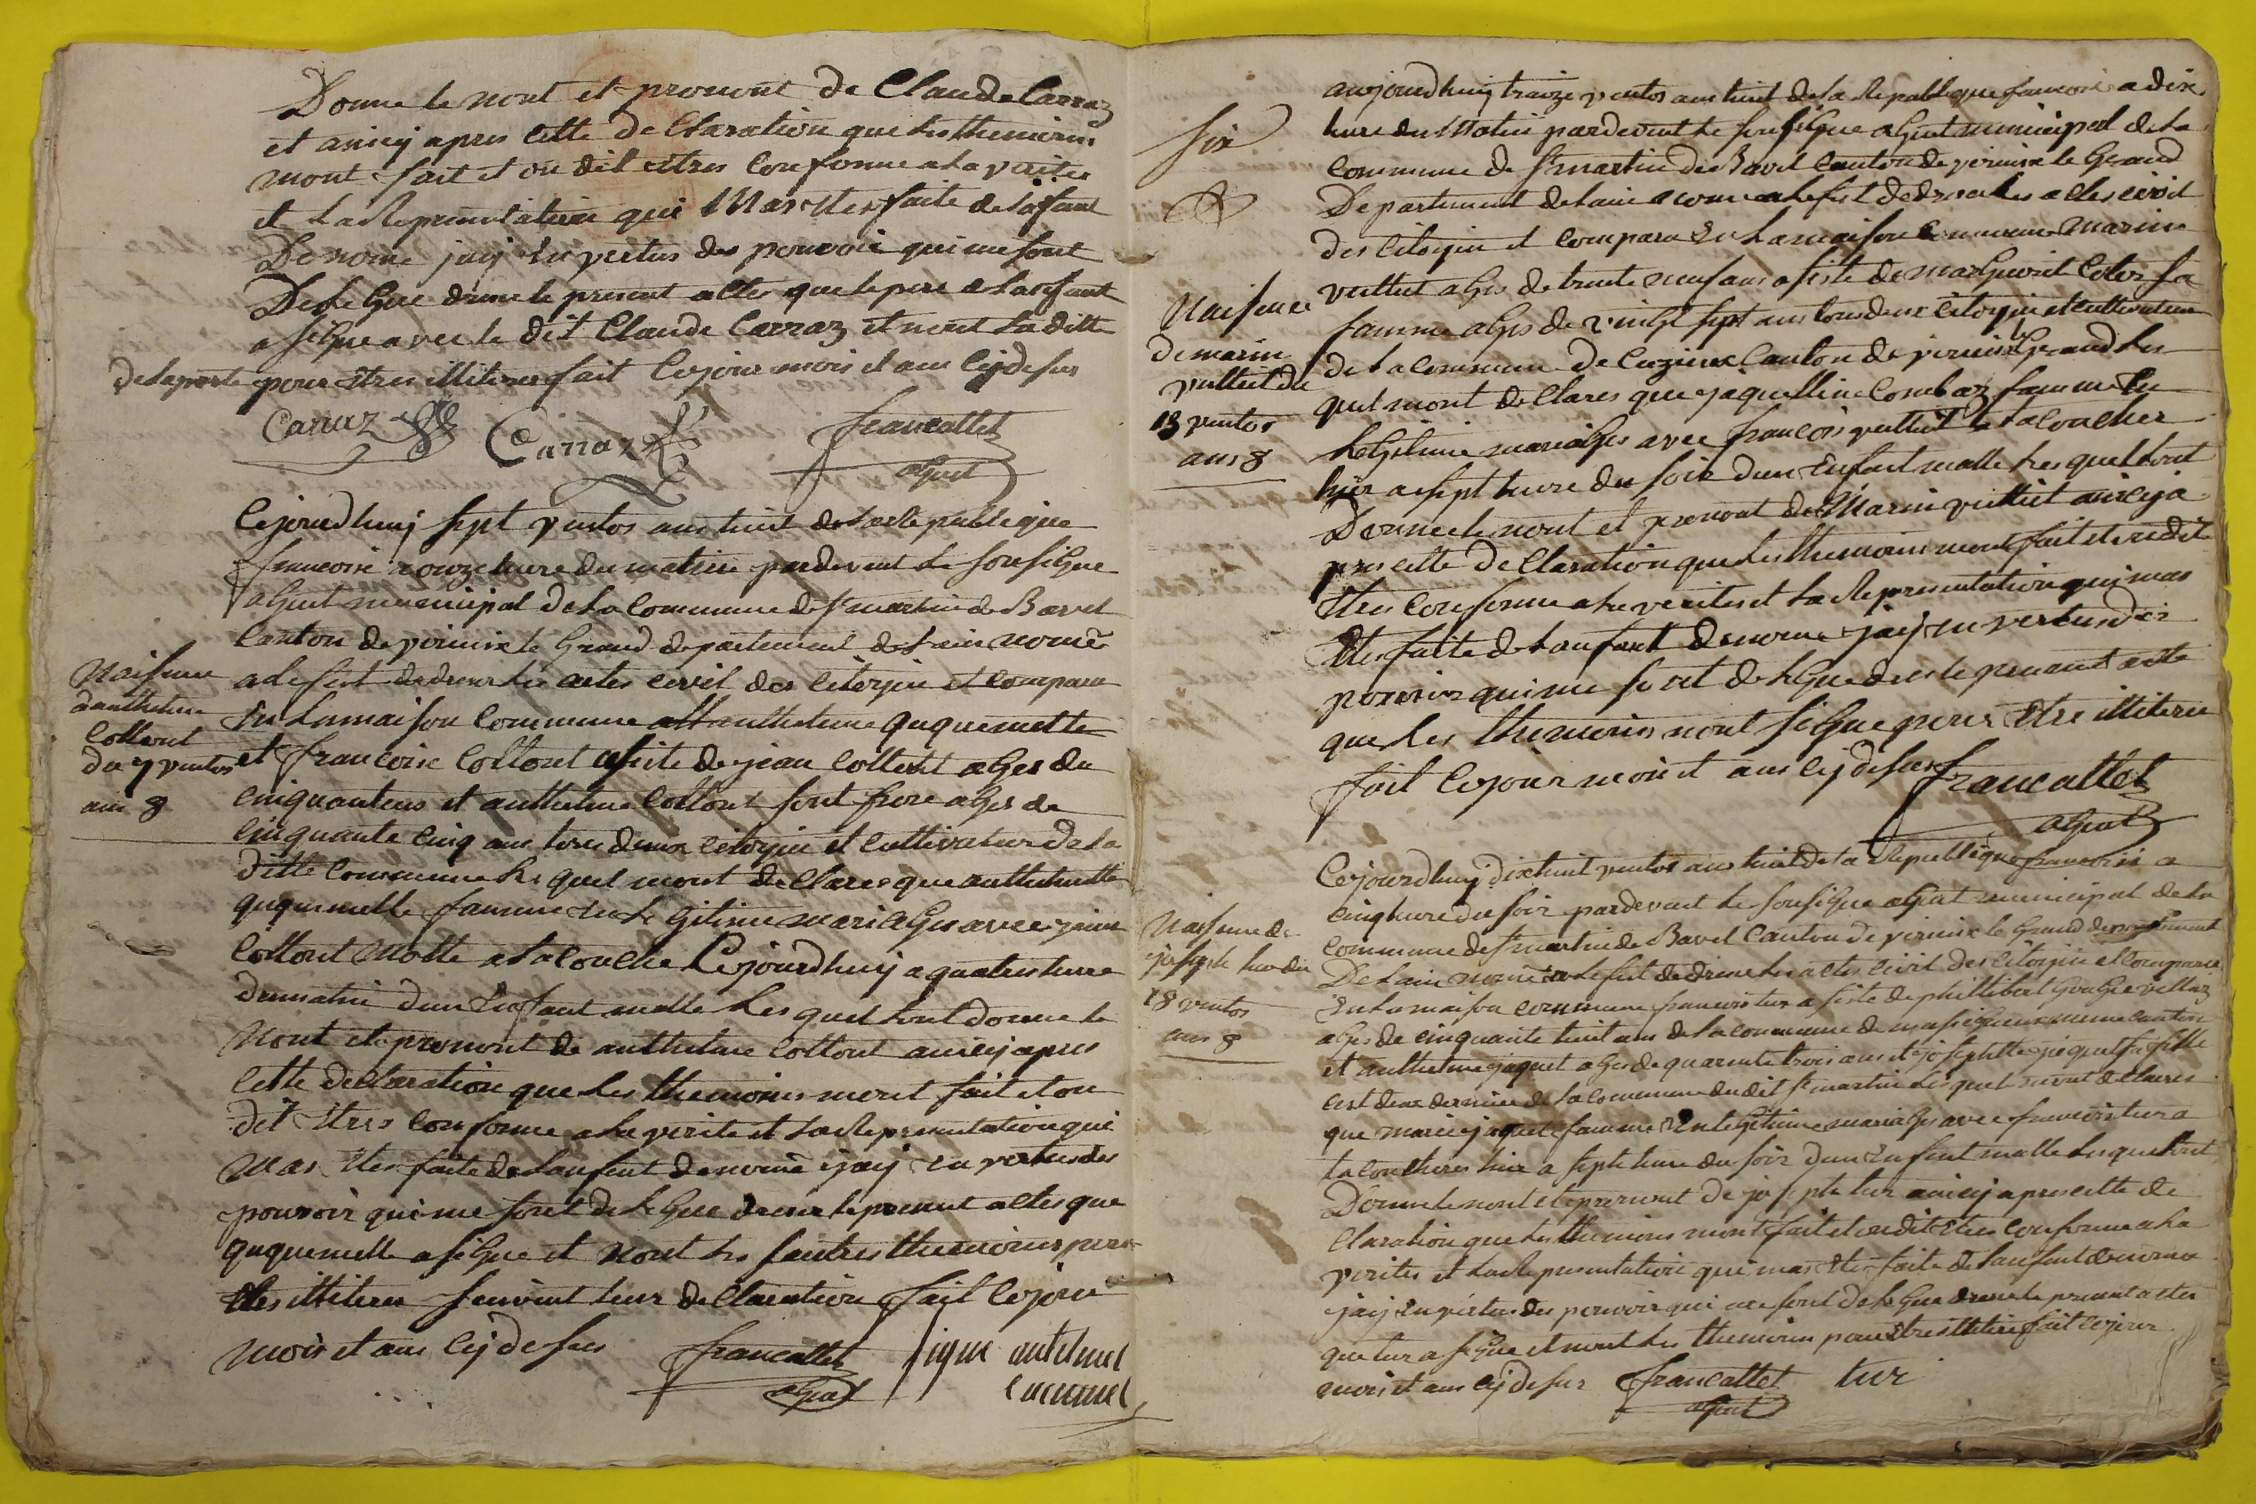 Donne le nont et prenont de Claude Carraz
et aincij apres cette declaration que les themoins
mont fait et on dit estres conforme a la verites
et la Representation qui Mas etes faite de lafant
Denomé jaij en vertus des pouvoir qui me sont
Delegue drece le present actes que le pere de lanfant
a signe avec le dit Claude Carraz et nont la ditte
delaporte pour êtres illiteres fait le jour mois et ans cij desus
Carraz Carraz francallet
agent
Cejourdhuij sept ventos ans huit de la Republique
francoise a onze heure du matin pardevant le sousigne
agent municipal de la commune de st martin de Bavel
canton de virieux le Grand departement de lain nomé
a lefect de drece les actes civil des citoyin et compara
en la maison commune anthelme guguemelle
et francoise Collont asiste de jean Collont ages de
cinquante et anthelme Collont sont frere ages de
cinquante cinq ans tous deux citoyin et cultivateur de la
ditte commune les quel mont declares que anthelmette
guguemelle famme en legitime mariages avec jean
Collont Molle a lacouche Cejourdhuij a quatres heure
du matin dun Enfant malle les quel lont donne le
Nont et prenont de anthelme Collont aincij apres
cette declaration que les themoins mont fait et on
dit Etres conforme a la verite et la Representation qui
Mas etes faite de lanfant denomé jaij en vertus des
pouvoir qui me sont delegue drece le present actes que
guguemelle a signe et nont les sautres themoins pour
etres illiteres suivant leur declaration fait le jour
mois et ans cij desus francallet signe antelmel
agent cucumel
Naisance
danthelme
Collont
du 7 ventos
ans 8
six
aujourdhuij traize ventos ans huit de la Republique francoise a dix
heure du Matin pardevant le sousigne agent municipal de la
commune de st martin de Bavel canton de virieux le Grand
Departement de lain nomé a lefect de drece les actes civil
des citoyin et compara en la maison commune Marin
vuilliet ages de trante neuf ans asiste de marguerit Colon sa
famme ages de vinght sept ans tous deux citoyin et cultivateur
de la commune de Cuzieux Canton de virieux le grand les
quel mont declares que jaquelline Combaz famme en
legitime mariages avec francois vuilliet a lacoucher
hier a sept heure du soir dun Enfant malle les quel lont
Donne le nont et prenont de Marin vuilliet aincij a
pres cette declaration que les themoins mont fait et on dit
Etres conforme a la verites et la Representation qui mas
Etes faite de lanfant denome jaij en vertus des
pouvoir qui me sont delegue drece le present acte
que les themoins nont signe pour Etre illiterer
fait le jour mois et ans cij desus francallet
agent
Naisance
de marin
vuilliet du
13 ventos
ans 8
Cejourdhuij dixhuit ventos ans huit de la Republique francoise a
cinq heure du soir pardevant le sousigne agent municipal de la
commune de st martin de Bavel Canton de virieux le Grand departement
De lain nomé a lefect de drece les actes civil des citoyin et compara
en la maison commune francois tur asiste de phillibert
ages de cinquante huit ans de la commune de masigneux meme canton
et anthelme jaquet ages de quarante trois ans et josephtte jaquet sa fille
cest deux derniee de la commune du dit st martin les quel mont declares
que marie jaquet famme En legitime mariages avec francois tur a
lacoucheres hier a septe heure du soir dun Enfant malle les quel lont
Donne le nont et prenont de joseph tur aincij apres cette de
claration que les themoins mont fait et on dit Etres conforme a la
verites et la Representation qui mas etes faite de lanfant denome
jaij en vertus des pouvoir qui me sont delegue drece le present actes
que tur a signe et nont les themoins pour Etres illitere fait le jour
mois et ans cij desus francallet tur
agent
Naisance de
joseph tur du
18 ventos
ans 8